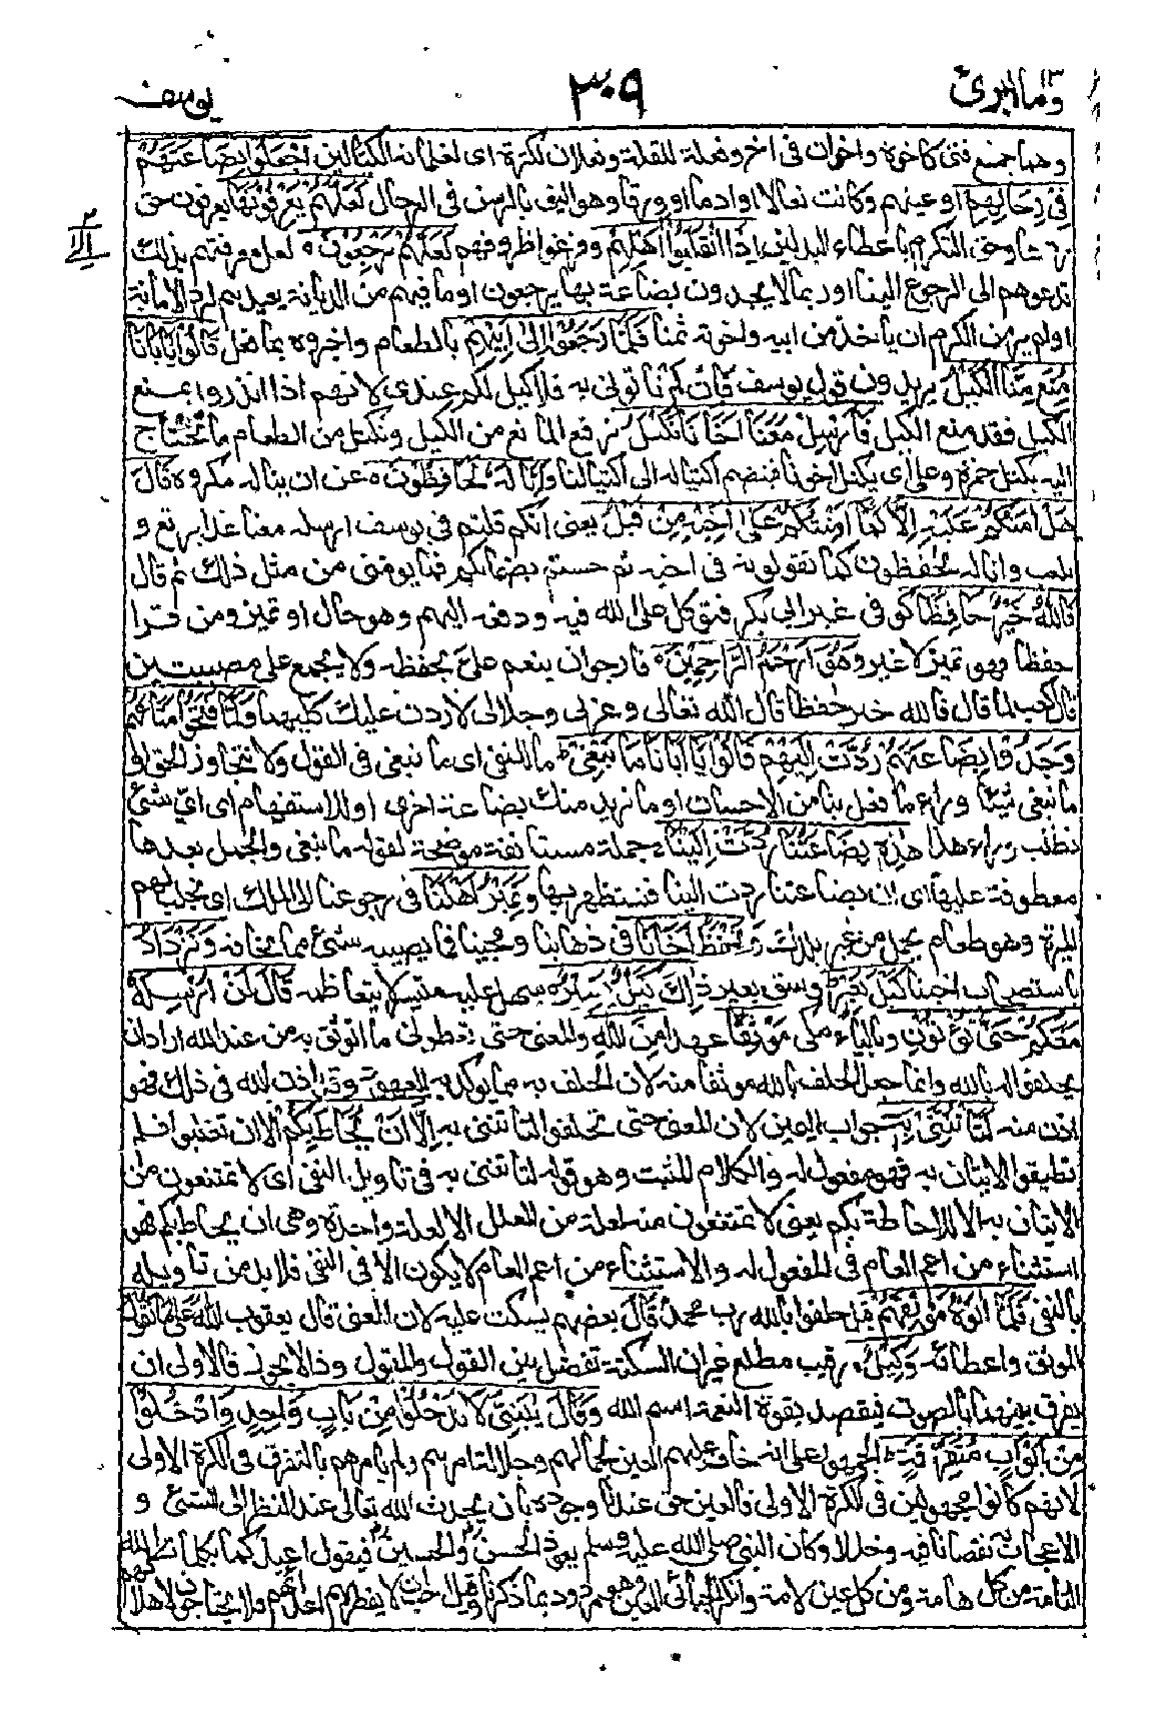 وما ابرئ ١٣
٣٠٩
يوسف
وهما جمع فتى كاخوة واخوان فى اخ وفعلة للقلة وفعلان للكثرة اى لغلمانه الكيالين اجعلوا بضاعتهم
فى رحالهم اوعيتهم وكانت نعالا او ادما او ورقا وهو اليق بالدس فى الرحال لعلهم يعرفونها يعرفون حق
ردها وحق التكرم باعطاء البدلين اذا انقلبوا الى اهلهم وفرغوا ظروفهم لعلهم يرجعون ٥ لعل معرفتهم بذلك
تدعوهم الى الرجوع الينا او ربما لا يجدون بضاعة بها يرجعون او ما فيهم من الديانة يعيدهم لرد الامانة
او لم ير من الكرم ان ياخذ من ابيه واخوته ثمنا فلما رجعوا الى ابيهم بالطعام واخبروه بما فعل قالوا يابانا
منع منا الكيل يريدون قول يوسف فان لم تاتونى به فلا كيل لكم عندى لانهم اذا انذروا بمنع
الكيل فقد منع الكيل فارسل معنا اخانا نكتل نرفع المانع من الكيل ونكتل من الطعام ما نحتاج
اليه يكتل حمزة وعلى اى يكتل اخونا فينضم اكتياله الى اكتيالنا وانا له لحافظون ٥ عن ان يناله مكروه قال
هل امنكم عليه الا كما امنتكم على اخيه من قبل يعنى انكم قلتم فى يوسف ارسله معنا غدا يرتع و
يلعب وانا له لحفظون كما تقولونه فى اخيه ثم خنتم بضمانكم فما يؤمنى من مثل ذلك ثم قال
فالله خير حافظا كوفى غير ابى بكر فتوكل على الله فيه ودفعه اليهم وهو حال او تميز ومن قرا
حفظا فهو تميز لا غير وهو ارحم الراحمين ٥ فارجو ان ينعم على بحفظه ولا يجمع على مصيبتين
قال كعب لما قال فالله خير حفظا قال الله تعالى وعزتى وجلالى لاردن عليك كليهما ولما فتحوا متاعهم
وجدوا بضاعتهم ردت اليهم قالوا يا ابانا ما نبغى ط ما للنفى اى ما نبغى فى القول ولا نتجاوز الحق او
ما نبغى شيئا وراء ما فعل بنا من الاحسان او ما نريد منك بضاعة اخرى او للاستفهام اى اى شئ
نطلب وراء هذا هذه بضاعتنا ردت الينا ج جملة مستانفة موضحة لقوله ما نبغى والجمل بعدها
معطوفة عليها اى ان بضاعتنا ردت الينا فنستظهر بها ونمير اهلنا فى رجوعنا الى الملك اى نجلب لهم
الميرة وهو طعام يحمل من غير بلدك ونحفظ اخانا فى ذهابنا ومجيئنا فما يصيبه شئ مما يخافه ونزداد
باستصحاب اخينا كيل بعير ط وسق بعير ذلك كيل يسير ٥ سهل عليه متيسر لا يتعاظمه قال لن ارسله
معكم حتى تؤتون وبالياء مكى موثقا عهدا من الله والمعنى حتى تعطونى ما اتوثق به من عند الله اراد ان
يحلفوا له بالله وانما جعل الحلف بالله موثقا منه لان الحلف به مما يؤكد به العهود وقد اذن الله فى ذلك فهو
اذن منه لتاتننى به جواب اليمين لان المعنى حتى تحلفوا لتاتننى به الا ان يحاط بكم ج الا ان تغلبوا فلم
تطيقوا الاتيان به فهو مفعول له والكلام المثبت وهو قوله لتاتننى به فى تاويل النفى اى لا تمتنعون من
الاتيان به الا للاحاطة بكم يعنى لا تمتنعون منه لعلة من العلل الا لعلة واحدة وهى ان يحاط بكم هو
استثناء من اعم العام فى المفعول له والاستثناء من اعم العام لا يكون الا فى النفى فلا بد من تاويله
بالنفى فلما اتوه موثقهم قيل حلفوا بالله رب محمد قال بعضهم يسكت عليه لان المعنى قال يعقوب الله على ما نقول
الموثق واعطائه وكيل ٥ رقيب مطلع غير ان السكتة تفصل بين القول والمقول وذا لا يجوز فالاولى ان
يفرق بينهما بالصوت فيقصد بقوة النغمة اسم الله وقال يبنى لا تدخلوا من باب واحد وادخلوا
من ابواب متفرقة ط الجمهور على انه خاف عليهم العين لجمالهم وجلالة امرهم ولم يامرهم بالتفرق فى الكرة الاولى
لانهم كانوا مجهولين فى الكرة الاولى فالعين حق عندنا وجوده بان يحدث الله تعالى عند النظر الى الشئ و
الاعجاب به نقصانا فيه وخللا وكان النبى صلى الله عليه وسلم يعوذ الحسن والحسين فيقول اعيذكما بكلمات الله
التامة من كل هامة ومن كل عين لامة وانكر الجبائى العين وهو مردود بما ذكرنا وقيل